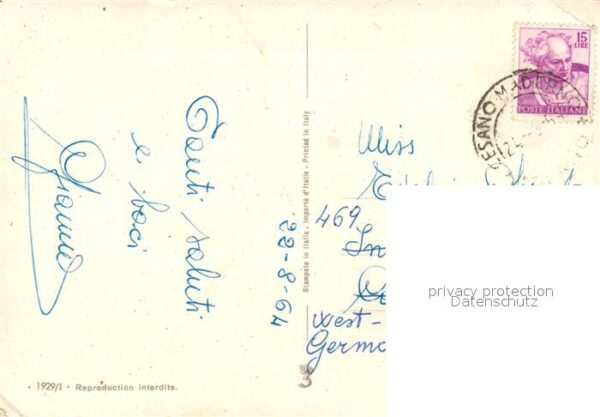 Tanti saluti
e baci
Gianni
28-8-64
1929/1 • Reproduction interdite.
Stampato in Italia - Importé d'Italie - Printed in Italy
15
LIRE
POSTE ITALIANE
ESANO MADERNO
Miss
469
West-
Germa
3
privacy protection
Datenschutz